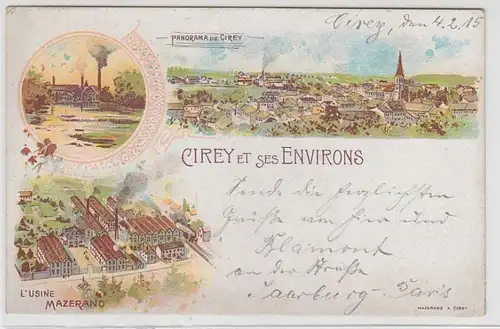 Cirey, den 4.2.15
PANORAMA DE CIREY
CIREY ET SES ENVIRONS
Sende die herzlichsten
Grüße von hier und
Blamont
an der Straße
Saarburg - Paris
L'USINE
MAZERAND
MAZERAND A CIREY